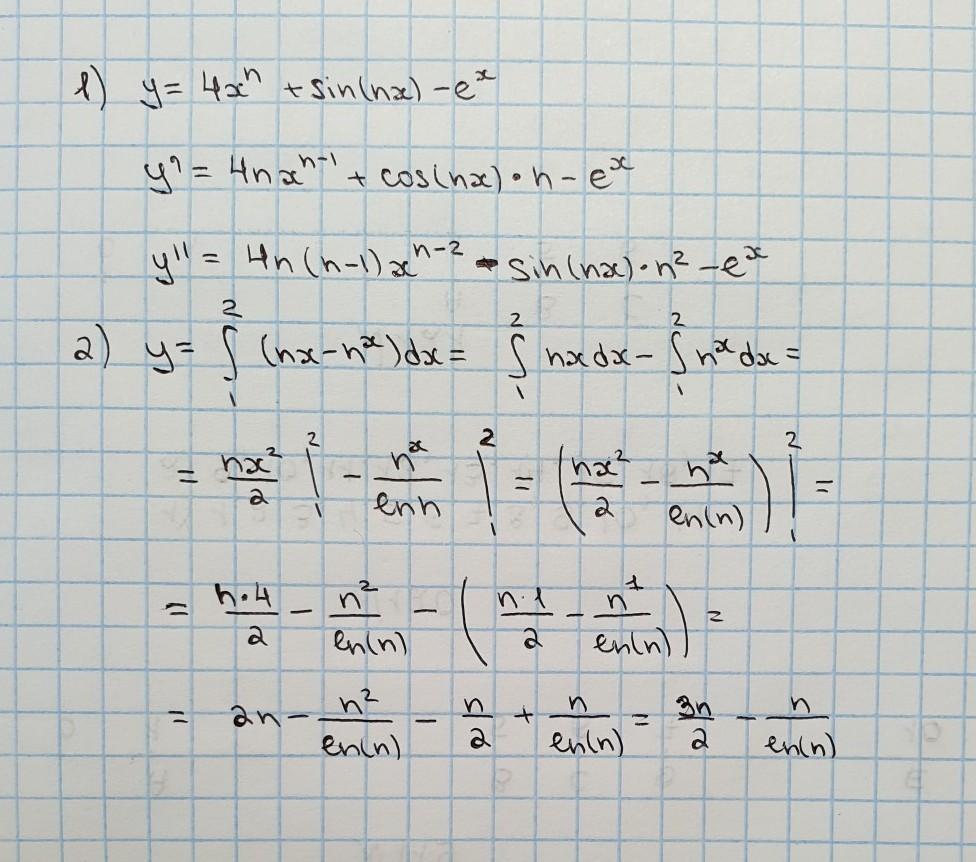 1) y = 4xⁿ + sin(nx) - eˣ
y' = 4nxⁿ⁻¹ + cos(nx)·n - eˣ
y'' = 4n(n-1)xⁿ⁻² - sin(nx)·n² - eˣ
2) y = ∫₁² (nx - nˣ)dx = ∫₁² nxdx - ∫₁² nˣdx =
= nx²/2 |₁² - nˣ/ln n |₁² = (nx²/2 - nˣ/ln(n)) |₁² =
= n·4/2 - n²/ln(n) - (n·1/2 - n¹/ln(n)) =
= 2n - n²/ln(n) - n/2 + n/ln(n) = 3n/2 - n/ln(n)